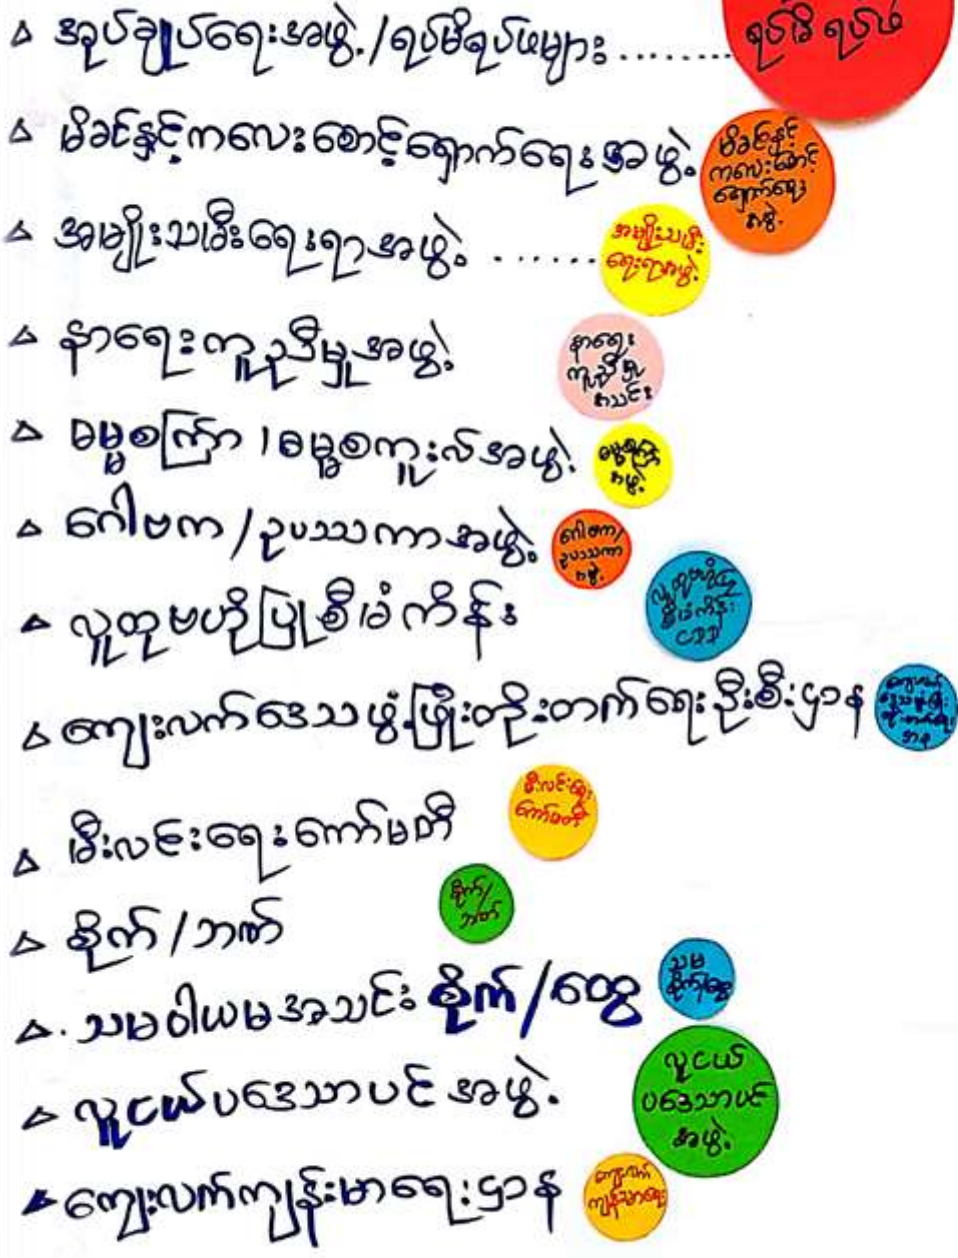 အုပ်ချုပ်ရေးအဖွဲ့/ရပ်မိရပ်ဖများ ............
ရပ်မိ ရပ်ဖ
မိခင်နှင့်ကလေးစောင့်ရှောက်ရေးအဖွဲ့
မိခင်နှင့်
ကလေးစောင့်
ရှောက်ရေး
အဖွဲ့
အမျိုးသမီးရေးရာအဖွဲ့ ......
အမျိုးသမီး
ရေးရာအဖွဲ့
နာရေးကူညီမှုအဖွဲ့
နာရေး
ကူညီမှု
အသင်း
ဓမ္မစကြာ/ဓမ္မစကူးလ်အဖွဲ့
ဓမ္မစကြာ
အဖွဲ့
ဂေါပက/ဥပဿကာအဖွဲ့
ဂေါပက/
ဥပဿကာ
အဖွဲ့
လူထုဗဟိုပြုစီမံကိန်း
လူထုဗဟိုပြု
စီမံကိန်း
CDD
ကျေးလက်ဒေသဖွံ့ဖြိုးတိုးတက်ရေးဦးစီးဌာန
ကျေးလက်
ဒေသဖွံ့ဖြိုး
တိုးတက်ရေး
ဌာန
မီးလင်းရေးကော်မတီ
မီးလင်းရေး
ကော်မတီ
စိုက်/ဘဏ်
စိုက်/
ဘဏ်
သမဝါယမအသင်း စိုက်/ထွေ
သမ
စိုက်/ထွေ
လူငယ်ပဒေသာပင်အဖွဲ့
လူငယ်
ပဒေသာပင်
အဖွဲ့
ကျေးလက်ကျန်းမာရေးဌာန
ကျေးလက်
ကျန်းမာရေး